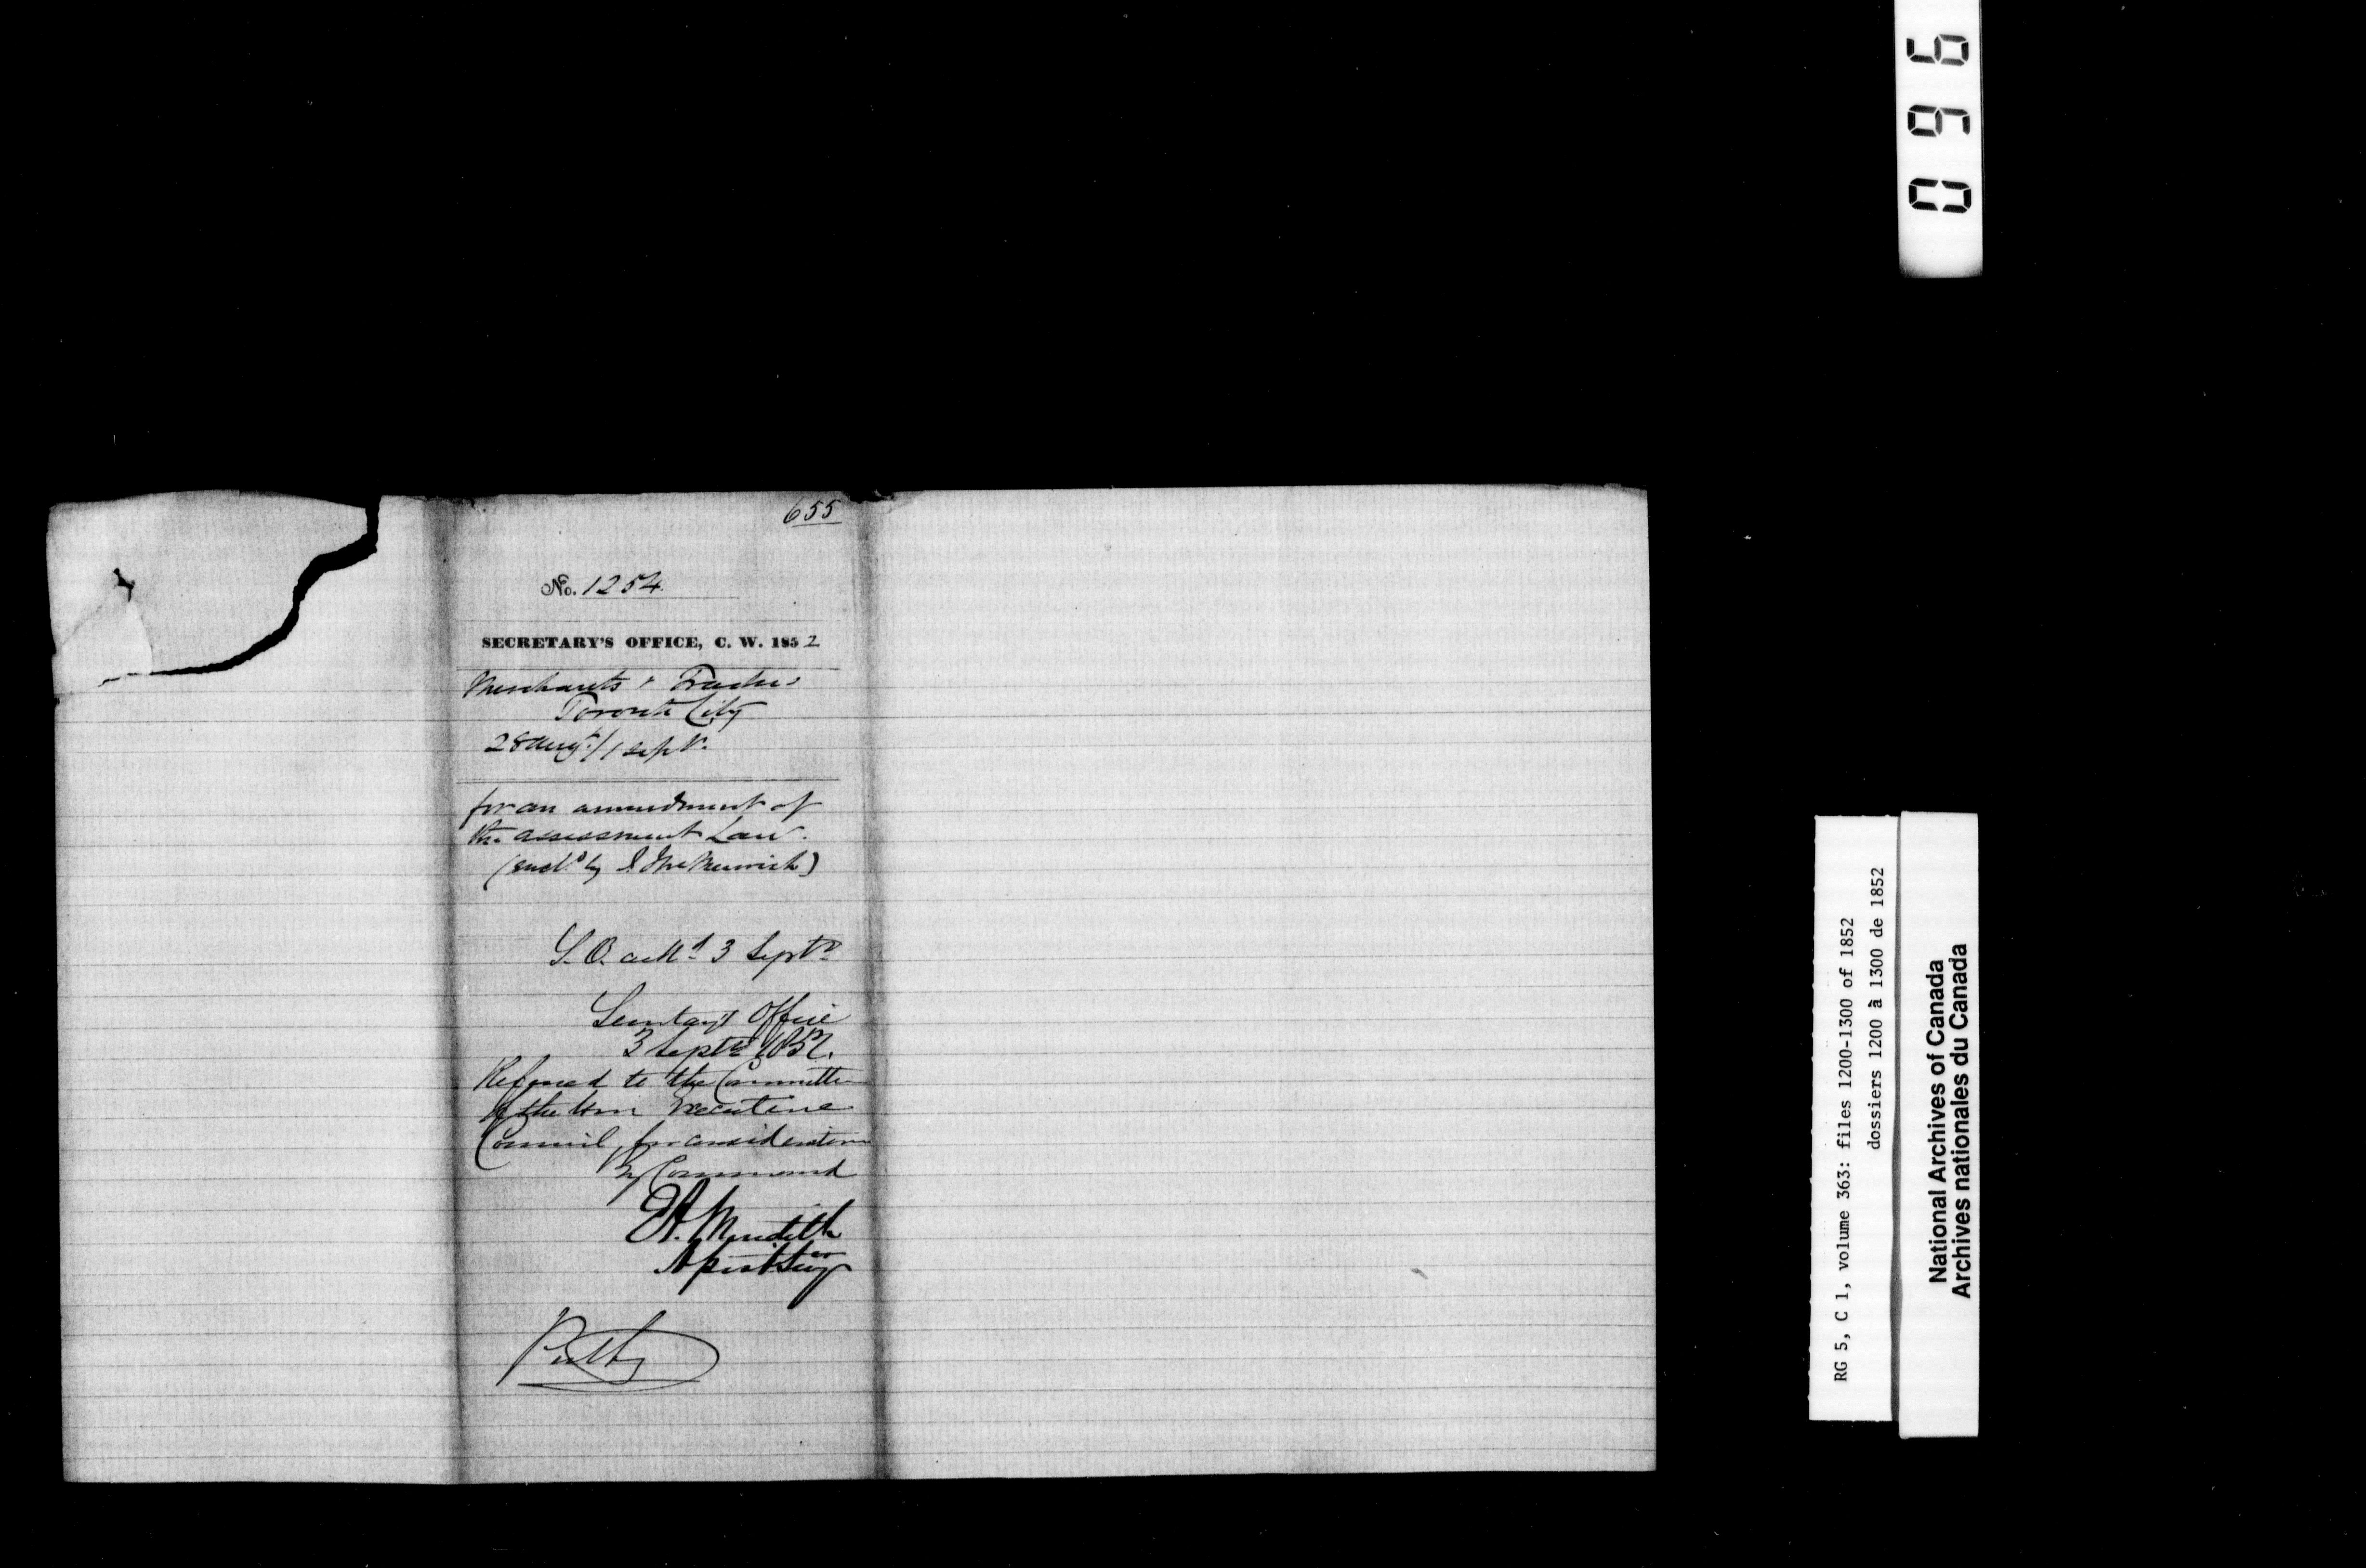 655
No. 1254
SECRETARY'S OFFICE, C. W. 1852
Merchants & Traders
Toronto City
28 Augt. / 1 Septr.
for an amendment of
the assessment Law.
(encld by
S. O. ackd 3 Septr
Secretary's Office
3 Septr 1852.
Referred to the Committee
of the Hon Executive
Council, for consideration
By Command
E A. Meredith
Assist Secy
096
RG 5, C 1, volume 363: files 1200-1300 of 1852
dossiers 1200 à 1300 de 1852
National Archives of Canada
Archives nationales du Canada